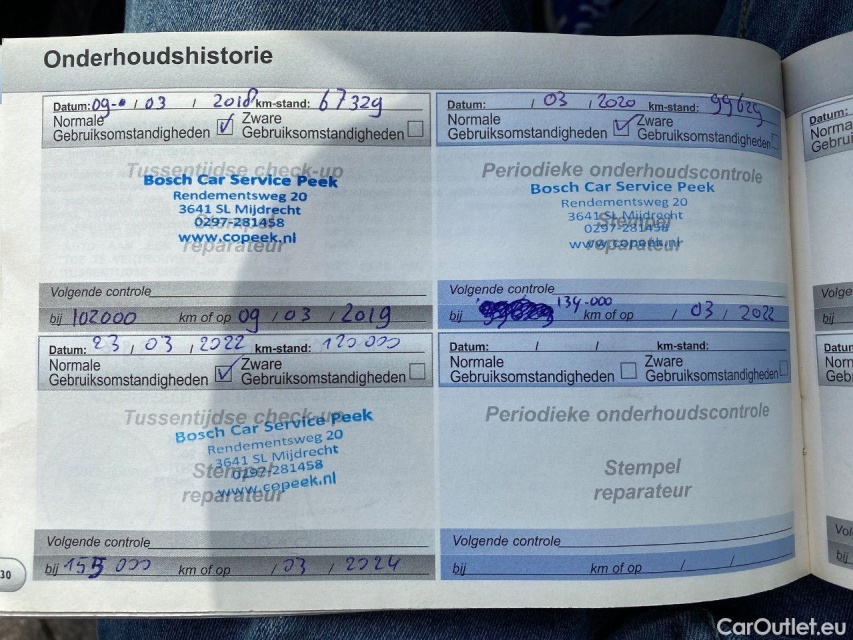 Onderhoudshistorie
Datum: 09 / 03 / 2018 km-stand: 67329
Normale Gebruiksomstandigheden ☑ Zware Gebruiksomstandigheden ☐
Tussentijdse check-up
Bosch Car Service Peek
Rendementsweg 20
3641 SL Mijdrecht
0297-281458
www.copeek.nl
reparateur
Volgende controle
bij 102000 km of op 09 / 03 / 2019
Datum: / 03 / 2020 km-stand:
Normale Gebruiksomstandigheden ☑ Zware Gebruiksomstandigheden ☐
Periodieke onderhoudscontrole
Bosch Car Service Peek
Rendementsweg 20
3641 SL Mijdrecht
Stempel
0297-281458
www.copeek.nl
reparateur
Volgende controle
134.000
bij km of op / 03 / 2022
Datum: 23 / 03 / 2022 km-stand: 120000
Normale Gebruiksomstandigheden ☑ Zware Gebruiksomstandigheden ☐
Tussentijdse check-up
Bosch Car Service Peek
Rendementsweg 20
3641 SL Mijdrecht
Stempel
0297-281458
www.copeek.nl
reparateur
Volgende controle
bij 155000 km of op / 03 / 2024
Datum: / / km-stand:
Normale Gebruiksomstandigheden ☐ Zware Gebruiksomstandigheden ☐
Periodieke onderhoudscontrole
Stempel
reparateur
Volgende controle
bij km of op / /
30
CarOutlet.eu